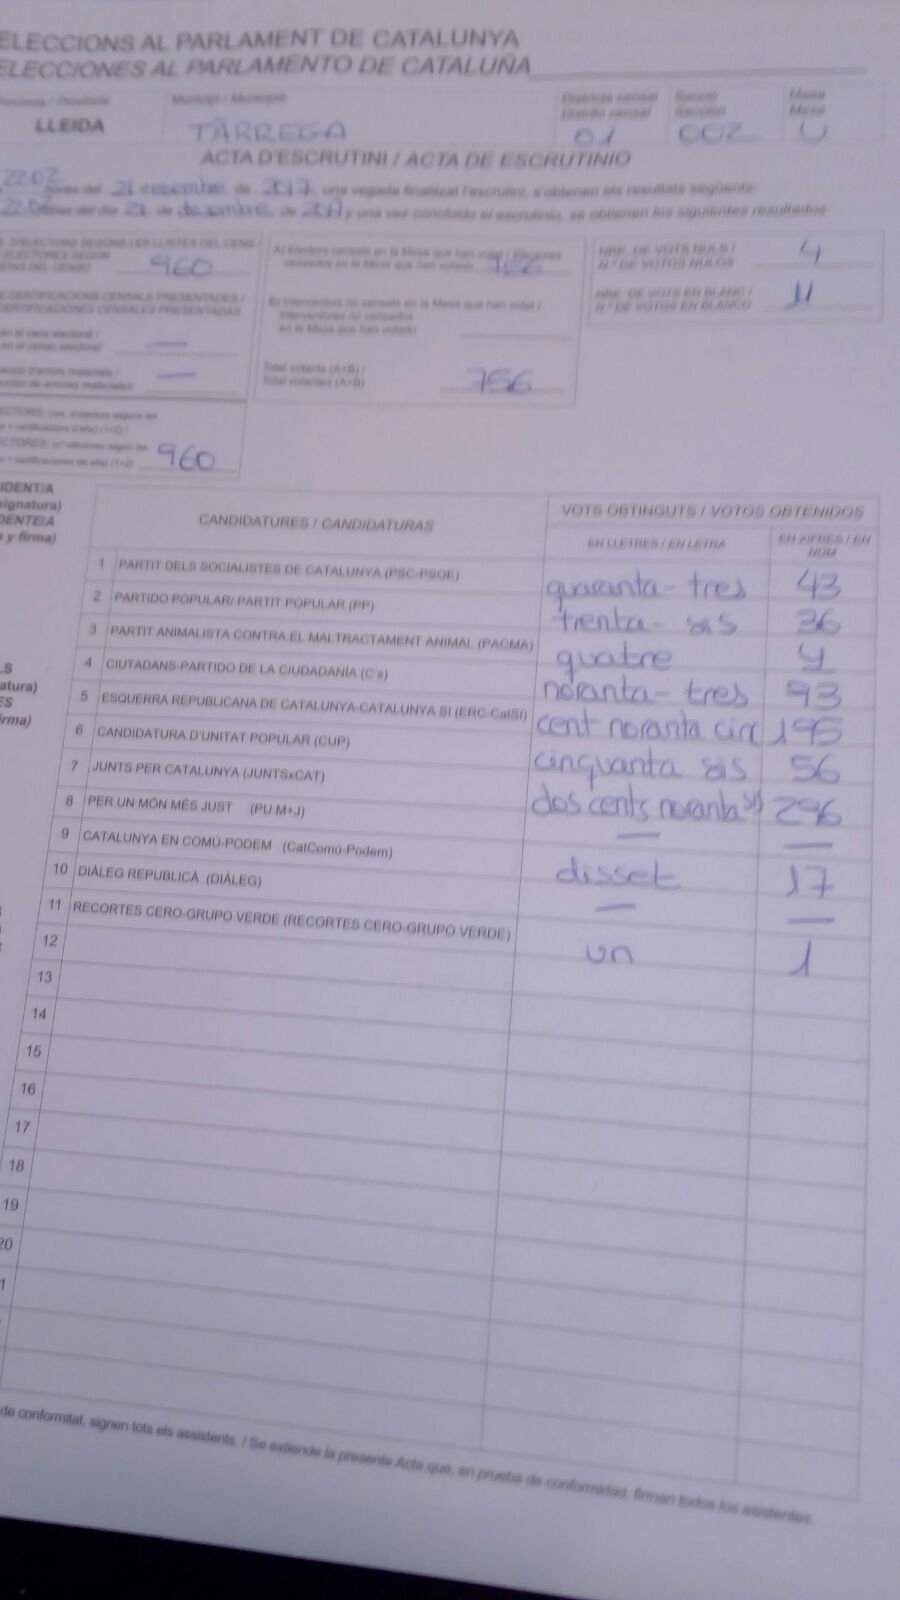 ELECCIONS AL PARLAMENT DE CATALUNYA
ELECCIONES AL PARLAMENTO DE CATALUÑA
Província / Provincia Municipi / Municipio Districte censal Secció Mesa
Distrito censal Sección Mesa
LLEIDA TÀRREGA 01 002 U
ACTA D'ESCRUTINI / ACTA DE ESCRUTINIO
22:02 hores del 21 desembre de 2017, una vegada finalitzat l'escrutini, s'obtenen els resultats següents:
22:02 horas del día 21 de desembre de 2017 y una vez concluido el escrutinio, se obtienen los siguientes resultados:
D'ELECTORS SEGONS LES LLISTES DEL CENS /
ELECTORES SEGÚN
LISTAS DEL CENSO 960
CERTIFICACIONS CENSALS PRESENTADES /
CERTIFICACIONES CENSALES PRESENTADAS
en el cens electoral /
en el censo electoral: —
d'errors materials /
de errores materiales: —
ECTORS: (nre. d'electors segons les
+ certificacions d'alta) (1+2) /
ECTORES: (nº electores según las
+ certificaciones de alta) (1+2) 960
A) Electors censats en la Mesa que han votat / Electores
censados en la Mesa que han votado 756
B) Interventors no censats en la Mesa que han votat /
Interventores no censados
en la Mesa que han votado
Total votants (A+B) /
Total votantes (A+B) 756
NRE. DE VOTS NULS /
N.º DE VOTOS NULOS 4
NRE. DE VOTS EN BLANC /
N.º DE VOTOS EN BLANCO 11
IDENT/A
signatura)
DENTE/A
y firma)
CANDIDATURES / CANDIDATURAS VOTS OBTINGUTS / VOTOS OBTENIDOS
EN LLETRES / EN LETRA EN XIFRES / EN NÚM.
1 PARTIT DELS SOCIALISTES DE CATALUNYA (PSC-PSOE) quaranta-tres 43
2 PARTIDO POPULAR/ PARTIT POPULAR (PP) trenta-sis 36
3 PARTIT ANIMALISTA CONTRA EL MALTRACTAMENT ANIMAL (PACMA) quatre 4
4 CIUTADANS-PARTIDO DE LA CIUDADANÍA (C's) noranta-tres 93
5 ESQUERRA REPUBLICANA DE CATALUNYA-CATALUNYA SÍ (ERC-CatSÍ) cent noranta cinc 195
6 CANDIDATURA D'UNITAT POPULAR (CUP) cinquanta sis 56
7 JUNTS PER CATALUNYA (JUNTSxCAT) dos cents noranta sis 296
8 PER UN MÓN MÉS JUST (PU M+J) — —
9 CATALUNYA EN COMÚ-PODEM (CatComú-Podem) disset 17
10 DIÀLEG REPUBLICÀ (DIÀLEG) — —
11 RECORTES CERO-GRUPO VERDE (RECORTES CERO-GRUPO VERDE) un 1
12
13
14
15
16
17
18
19
20
1
LS
atura)
ES
firma)
de conformitat, signen tots els assistents. / Se extiende la presente Acta que, en prueba de conformidad, firman todos los asistentes.